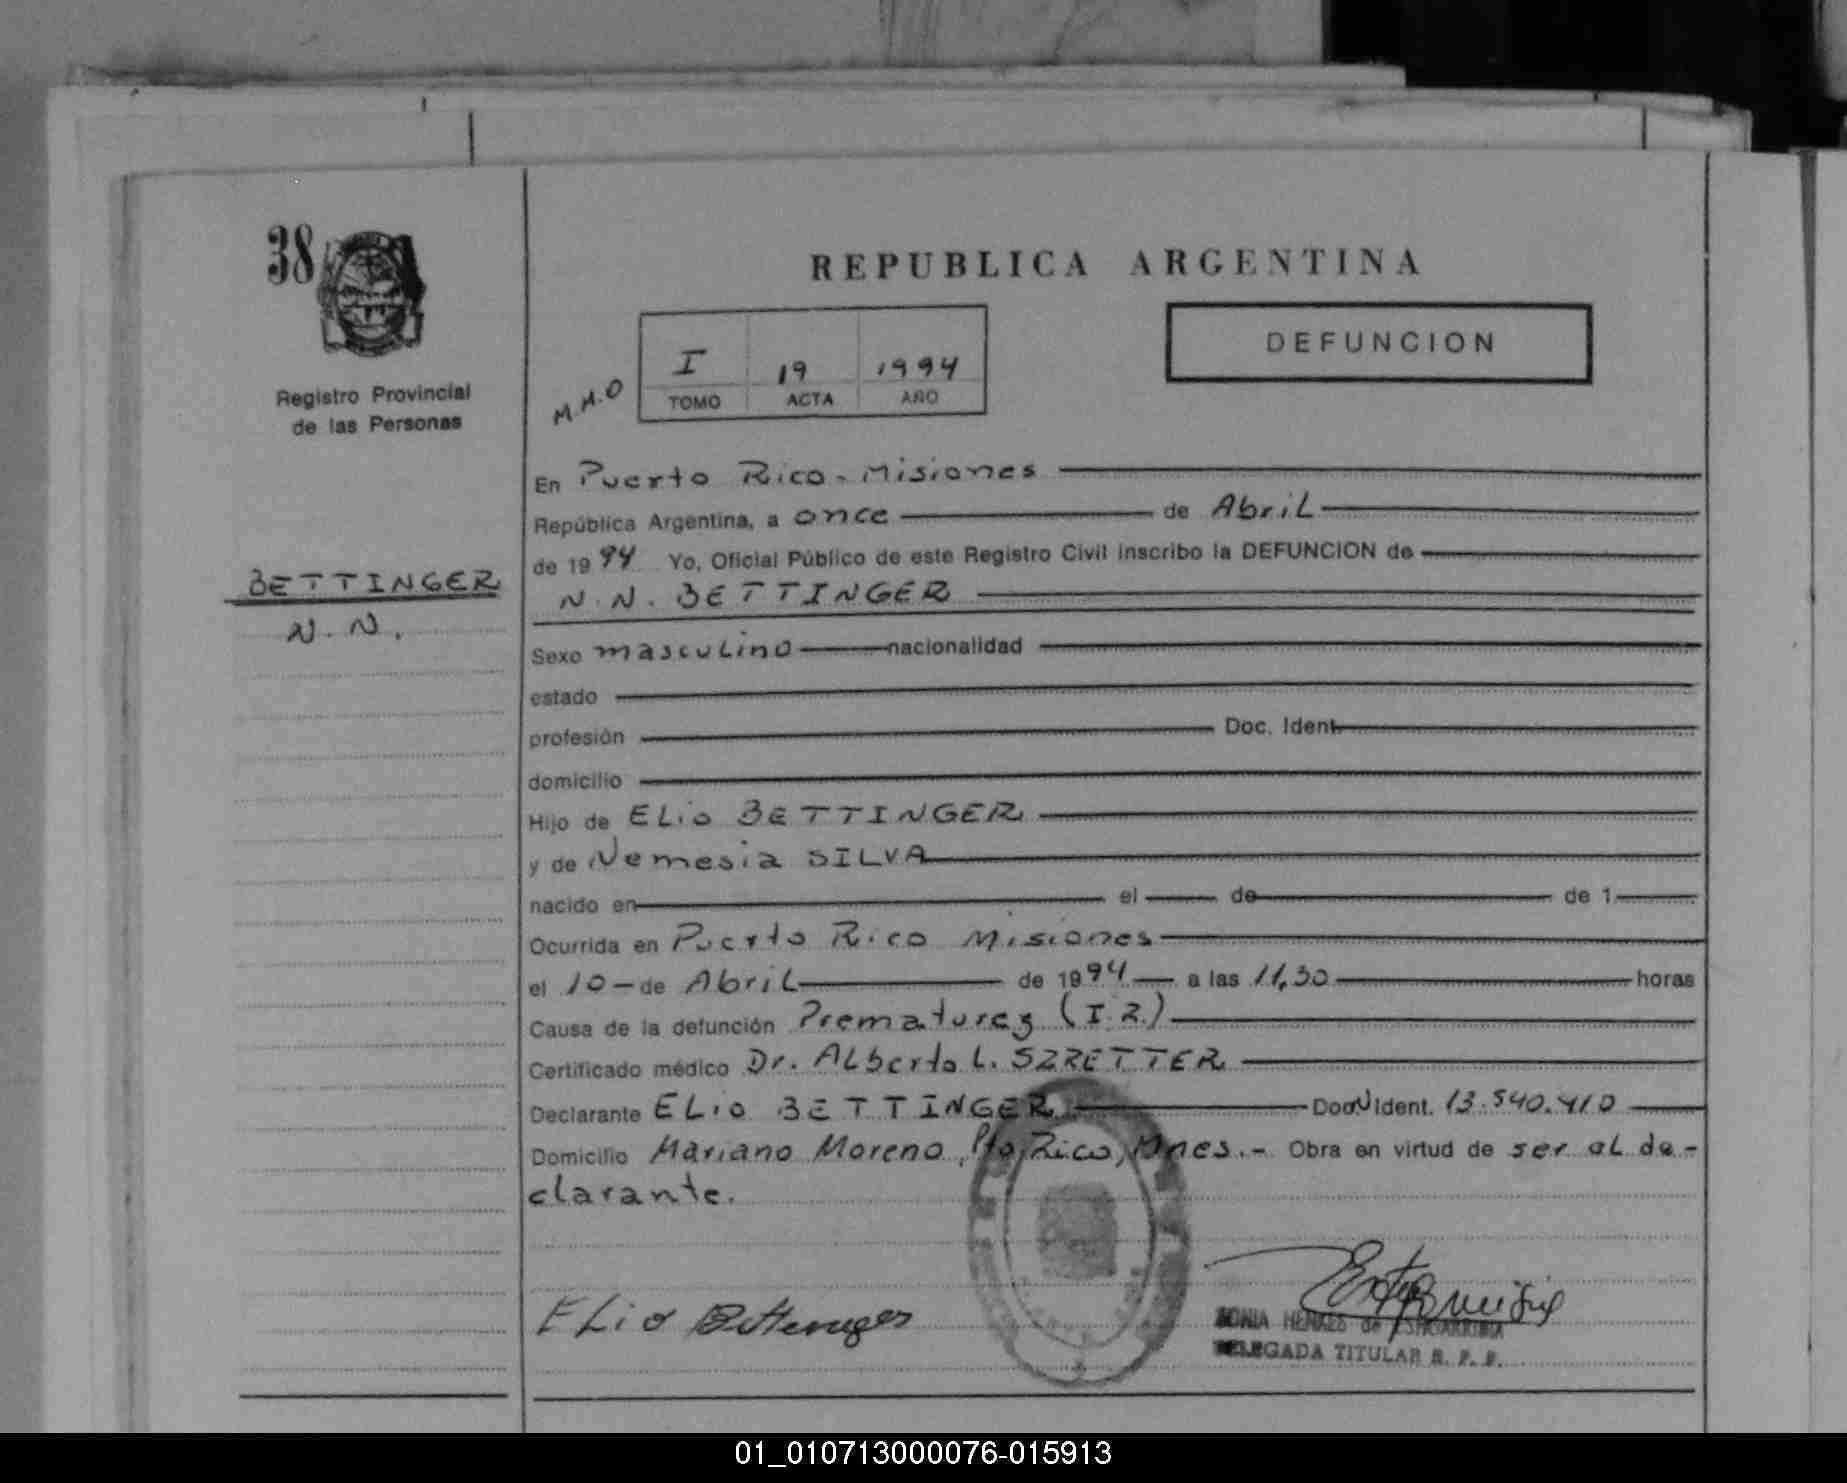 38
REPUBLICA ARGENTINA
DEFUNCION
I 19 1994
TOMO ACTA AÑO
M.A.O
Registro Provincial
de las Personas
En Puerto Rico - Misiones
República Argentina, a once de Abril
de 1994 Yo, Oficial Público de este Registro Civil inscribo la DEFUNCION de
BETTINGER
N.N. BETTINGER
N.N.
Sexo masculino nacionalidad
estado
profesión Doc. Ident.
domicilio
Hijo de ELio BETTINGER
y de Nemesia SILVA
nacido en el de de 1
Ocurrida en Puerto Rico Misiones
el 10 - de Abril de 1994 a las 11,30 horas
Causa de la defunción Prematurez (I.R.)
Certificado médico Dr. ALberto L. SZRETTER
Declarante ELio BETTINGER Doc. Ident. 13.540.410
Domicilio Mariano Moreno, Pto. Rico, Mnes. - Obra en virtud de ser aL de-
clarante.
ELio Bettinger
SONIA de
DELEGADA TITULAR R. P. P.
01_010713000076-015913